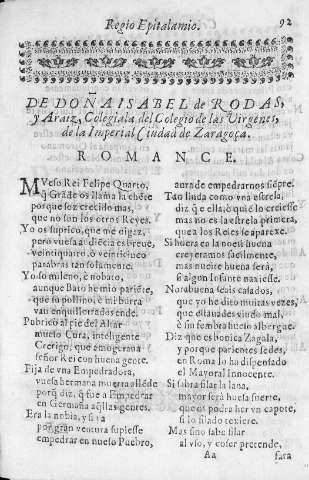 Regio Epitalamio. 92
DE DOÑA ISABEL de RODAS,
y Araiz, Colegiala del Colegio de las Virgenes,
de la Imperial Ciudad de Zaragoça.
ROMANCE.
MVeso Rei Felipe Quarto,
que no son los otros Reyes.
Yo os suprico, que me digaz,
pero vuesa audiecia es breue,
veintiquatro, ò veinticinco
parabras tan solamente.
Yo so mileno, è nobato,
aunque Bato he mio pariēte,
que io pollino, è mi burra
van enquillerrados ende.
Pubricò al pie del Altar
mueso Cura, inteligente
señor Rei con huesa gente.
Fija de vna Empedradora,
porq̃ diz, q̃ fue a Empedrar
en Germaña aq̃llas gentes.
Era la nobia, y si va
por gran ventura supiesse
empedrar en mueso Puebro,
aura de empedrarnos siēpre.
Tan linda como vna estrela,
diz q̃ e ella, ò qui lo creiesse
mas no es la estrela primera,
que a los Reies se aparexe.
Si huera en la noch buena
creyeramos facilmente,
mas noche buena serà,
si algun Infante nasciesse.
Norabuena seais casados,
que yo he dito muitas vezes,
que estauades viudo mal,
è sin sombra huerto albergue.
Diz que es bonica Zagala,
y porque parientes sedes,
en Roma lo ha dispensado
el Mayoral Innocente.
Si sabra filar la lana,
mayor serà huesa suerte,
que os podra her vn capote,
si lo filado texiere.
Mas sino sabe filar
al vso, y coser pretende,
Aa sara